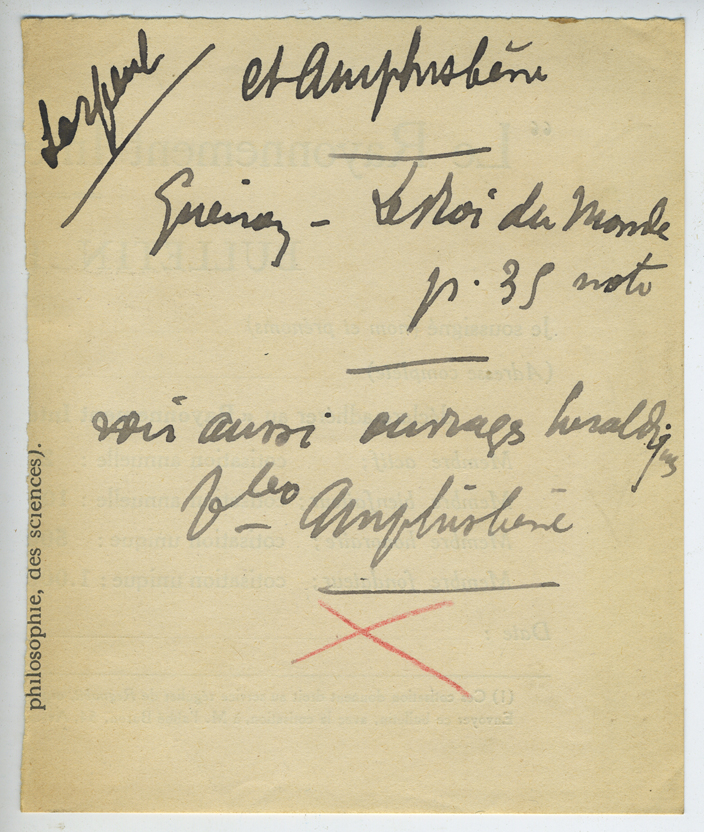 Serpent
et Amphisbène
Guénon - Le Roi du Monde
p. 35 note
voir aussi ouvrages heraldiques
Amphisbène
philosophie, des sciences).